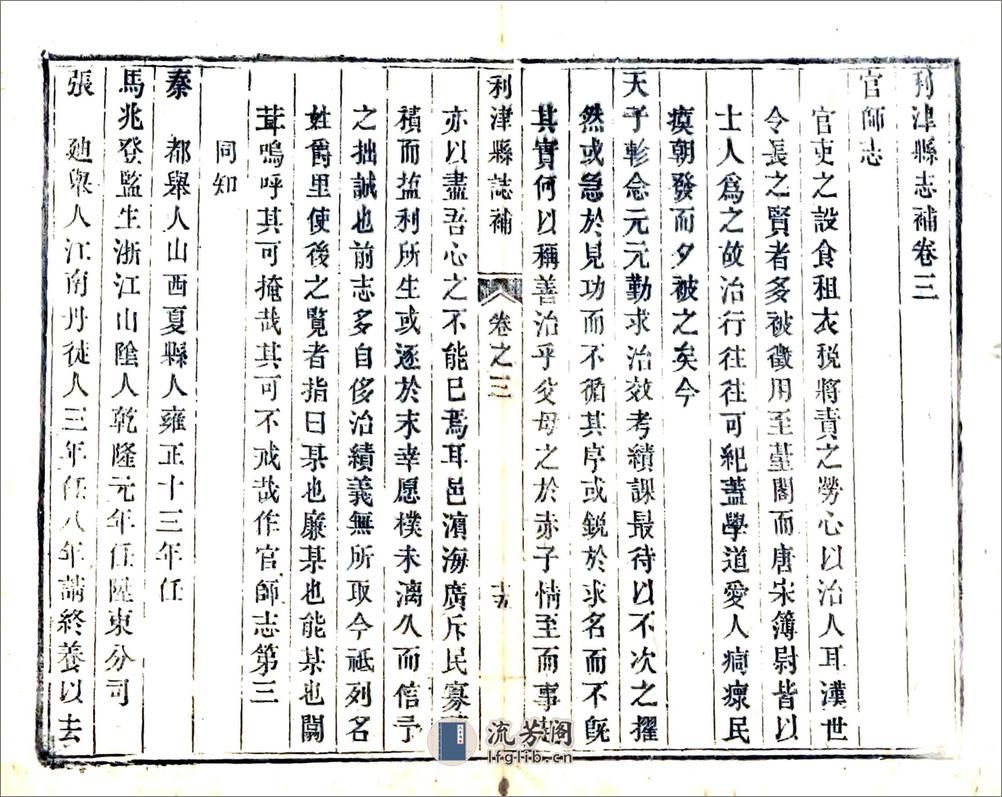 利津縣志補卷三
官師志
官吏之設食租衣稅將責之勞心以治人耳漢世
令長之賢者多被徵用至臺閣而唐宋簿尉皆以
士人爲之故治行往往可紀蓋學道愛人痌瘝民
瘼朝發而夕被之矣今
天子軫念元元勤求治效考績課最待以不次之擢
然或急於見功而不循其序或銳於求名而不旣
其實何以稱善治乎父母之於赤子情至而事
利津縣誌補
卷之三
十五
亦以盡吾心之不能已焉耳邑濵海廣斥民寡
積而益利所生或逐於末幸愿樸未漓久而信予
之拙誠也前志多自侈治績義無所取今祗列名
姓爵里使後之覽者指曰某也廉某也能某也闒
茸嗚呼其可掩哉其可不戒哉作官師志第三
同知
秦 都舉人山西夏縣人雍正十三年任
馬兆登監生浙江山陰人乾隆元年任陞東分司
張 廸舉人江南丹徒人三年任八年請終養以去
流芳閣
lfglib.cn